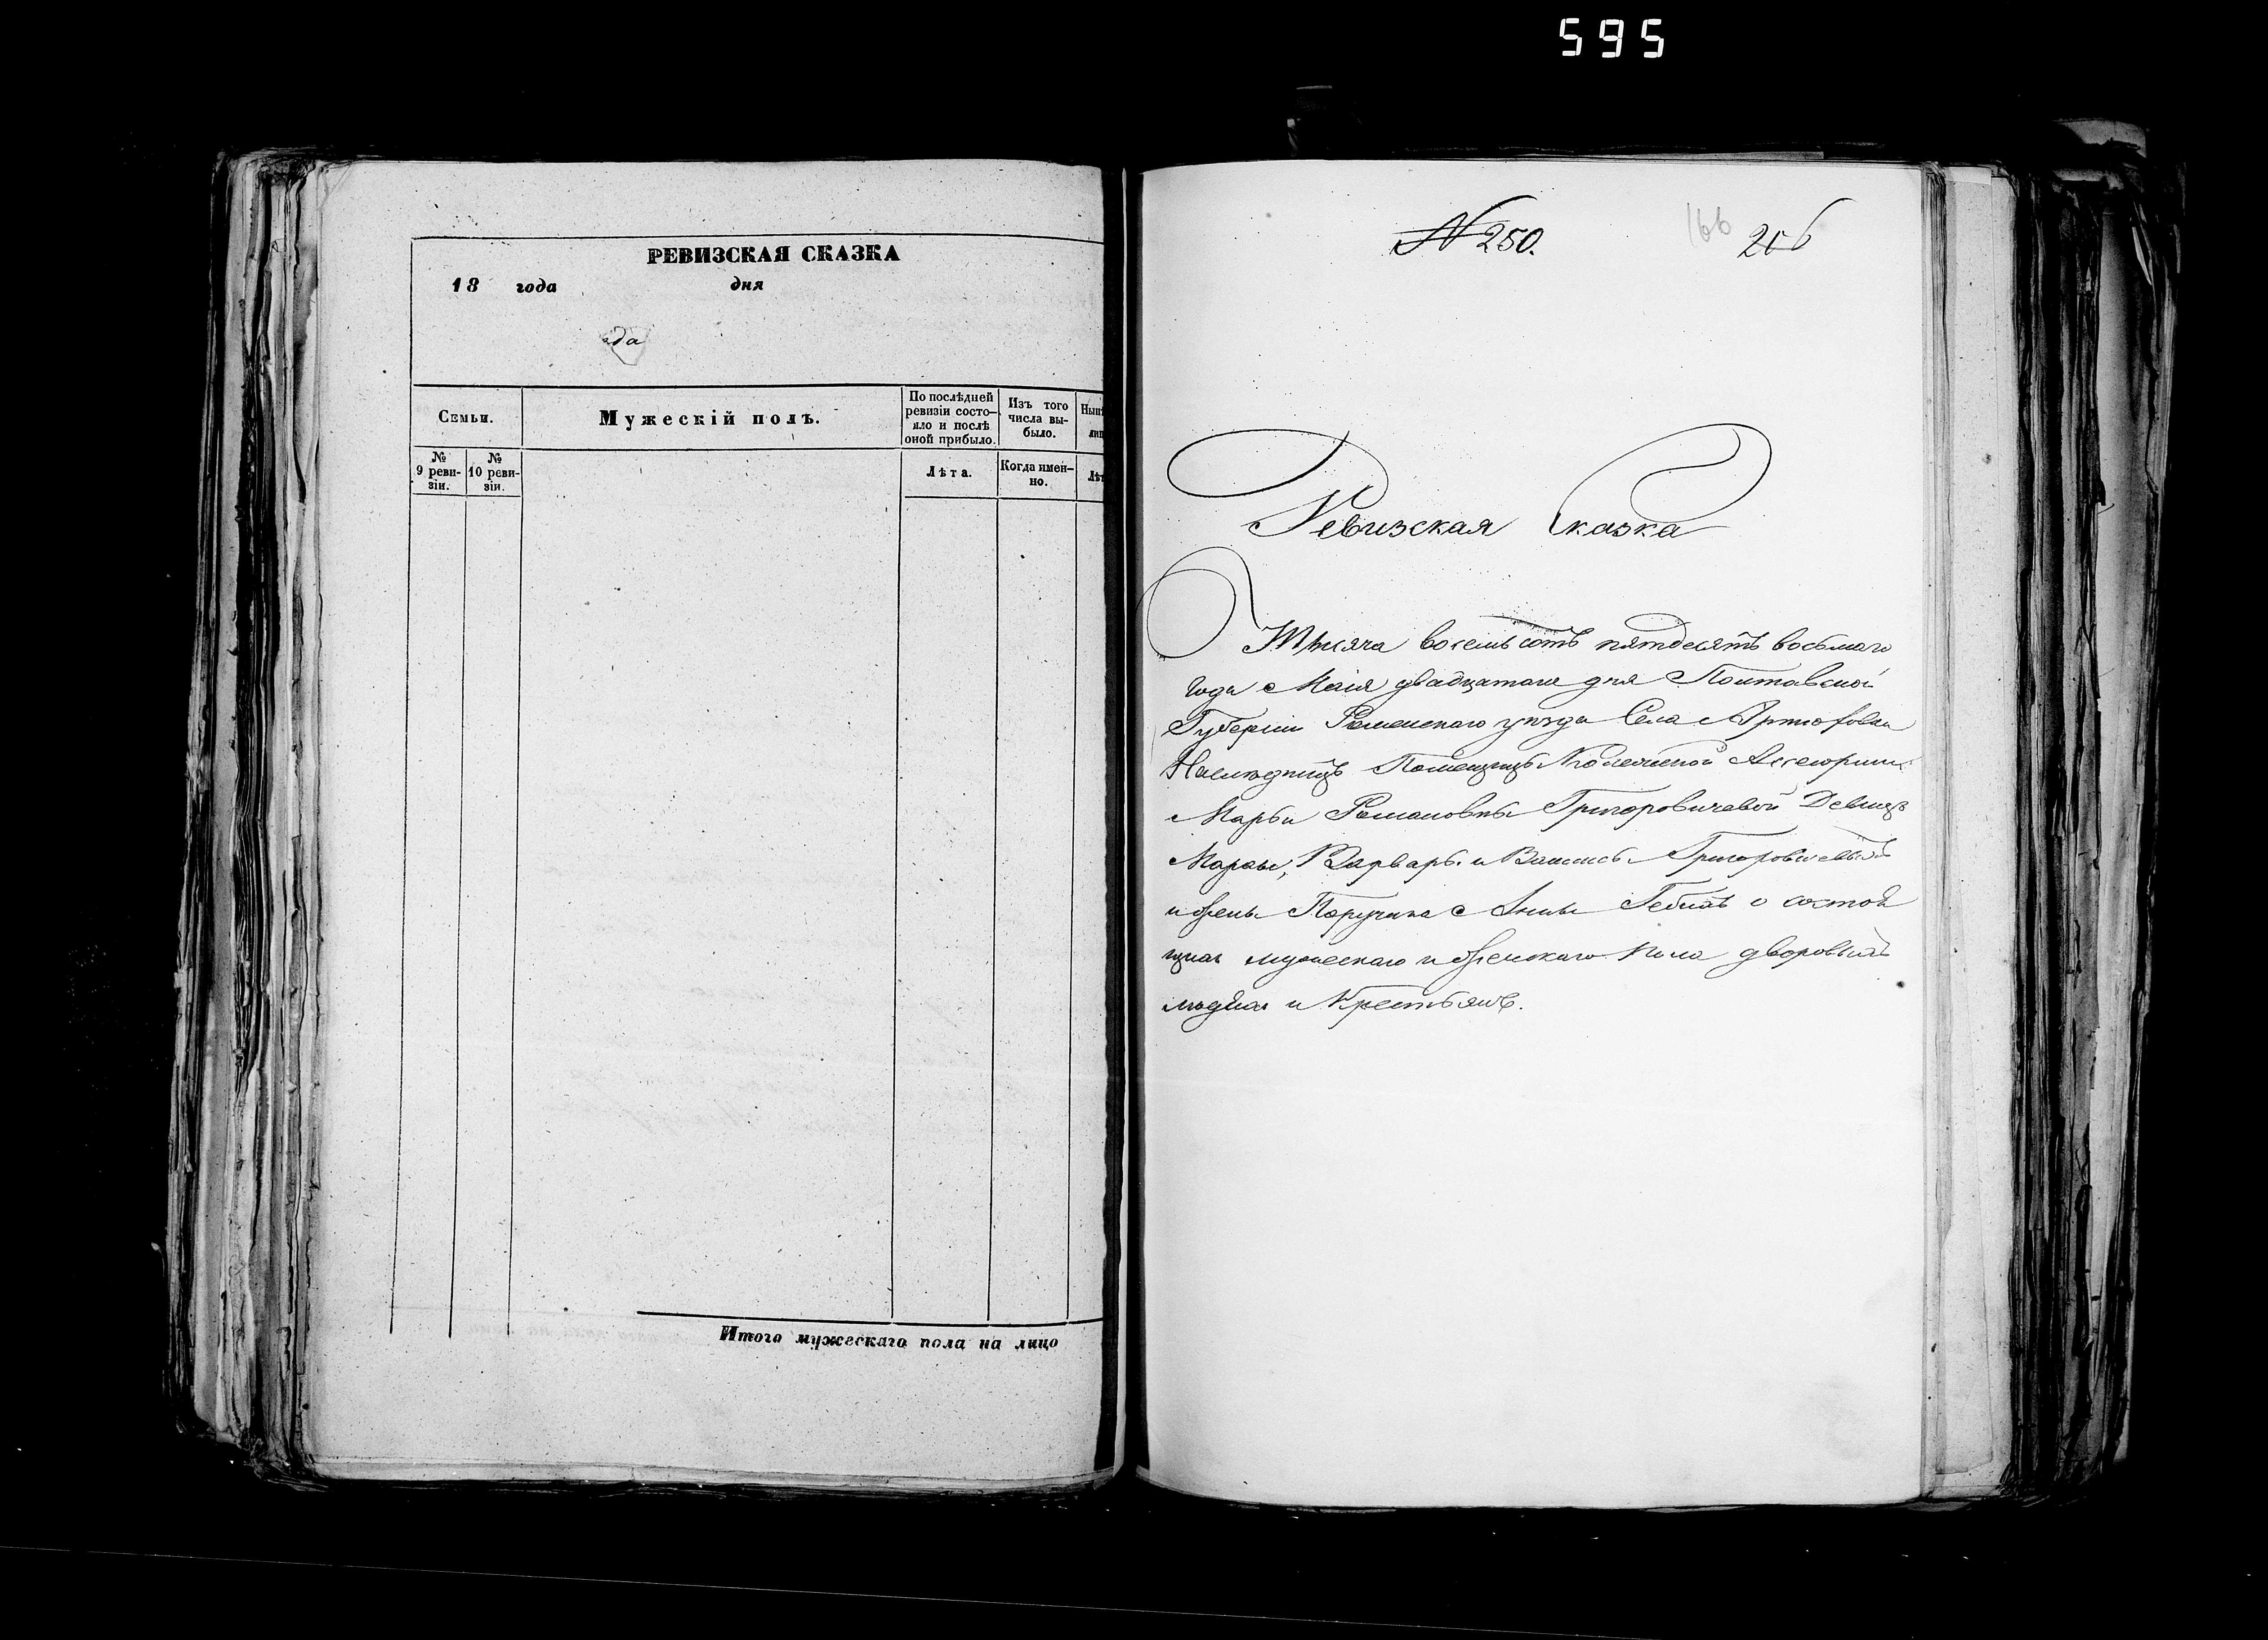 595
РЕВИЗСКАЯ СКАЗКА
18 года дня
да
Семьи.
Мужескій полъ.
По послѣдней ревизіи состо-
яло и послѣ оной прибыло.
Изъ того числа вы-
было.
№ 9 реви-
зіи.
№ 10 реви-
зіи.
Лѣта.
Когда имен-
но.
Итого мужескаго пола на лицо
№ 250.
166 206
Ревизская Сказка
Тысяча восемьсотъ пятдесятъ восьмаго
Года Маія двадцатаго дня Полтавской
Губерніи Роменскаго уѣзда Села Артюховки
Наслѣдницъ Помещицы Колежской Ассесорши
Марьи Романовны Григоровичевой Девицъ
Марьи, Варвары и Григоровичевыхъ
и жены Поручика Анны о состоя
щихъ мужескаго и женскаго пола дворовыхъ
людяхъ и Крестьянъ.